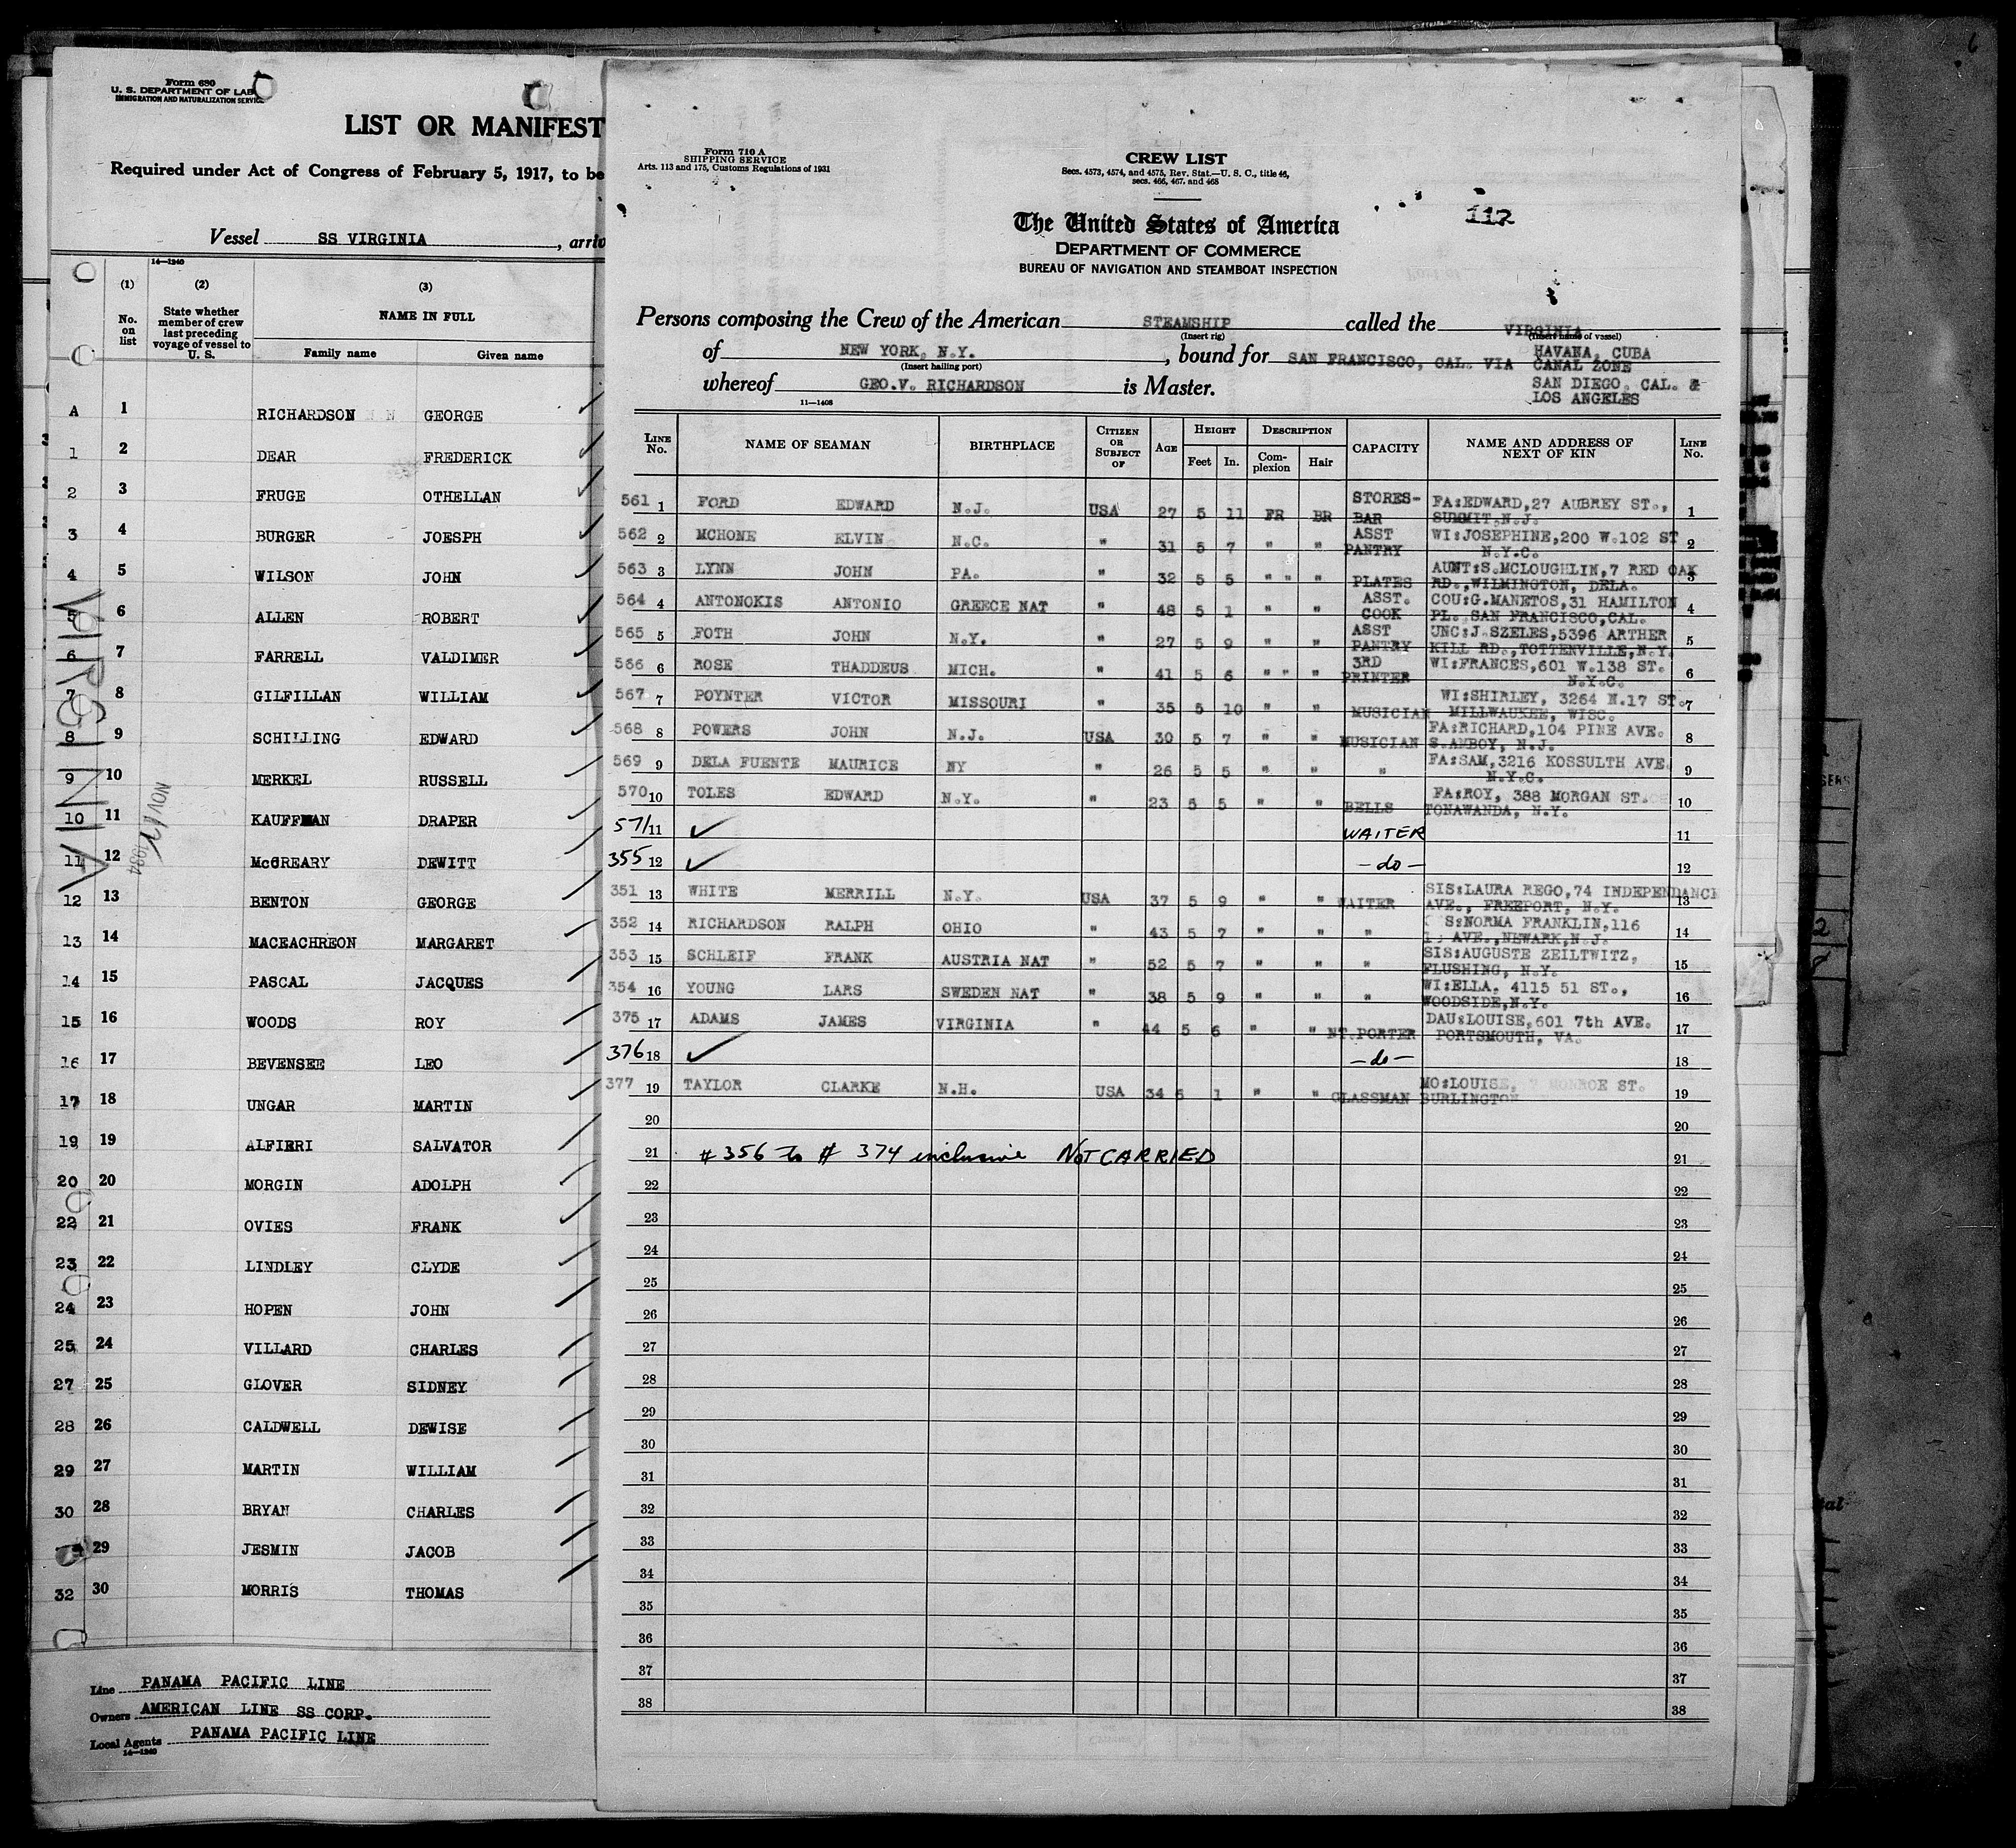 Form 680
U. S. DEPARTMENT OF LAB
IMMIGRATION AND NATURALIZATION SERVICE
LIST OR MANIFEST
Required under Act of Congress of February 5, 1917, to be
Vessel SS VIRGINIA, arriv
14—1240
(1) (2) (3)
No. on list
State whether member of crew last preceding voyage of vessel to U. S.
NAME IN FULL
Family name Given name
A 1 RICHARDSON GEORGE
1 2 DEAR FREDERICK
2 3 FRUGE OTHELLAN
3 4 BURGER JOESPH
4 5 WILSON JOHN
5 6 ALLEN ROBERT
6 7 FARRELL VALDIMER
7 8 GILFILLAN WILLIAM
8 9 SCHILLING EDWARD
9 10 MERKEL RUSSELL
10 11 KAUFFMAN DRAPER
11 12 McCREARY DEWITT
12 13 BENTON GEORGE
13 14 MACEACHREON MARGARET
14 15 PASCAL JACQUES
15 16 WOODS ROY
16 17 BEVENSEE LEO
17 18 UNGAR MARTIN
19 19 ALFIERI SALVATOR
20 20 MORGIN ADOLPH
22 21 OVIES FRANK
23 22 LINDLEY CLYDE
24 23 HOPEN JOHN
25 24 VILLARD CHARLES
27 25 GLOVER SIDNEY
28 26 CALDWELL DEWISE
29 27 MARTIN WILLIAM
30 28 BRYAN CHARLES
29 JESMIN JACOB
32 30 MORRIS THOMAS
VIRGINIA
NOV 1934
Line PANAMA PACIFIC LINE
Owners AMERICAN LINE SS CORP.
Local Agents PANAMA PACIFIC LINE
14—1240
Form 710 A
SHIPPING SERVICE
Arts. 113 and 175, Customs Regulations of 1931
CREW LIST
Secs. 4573, 4574, and 4575, Rev. Stat.—U. S. C., title 46,
secs. 466, 467, and 468
112
The United States of America
DEPARTMENT OF COMMERCE
BUREAU OF NAVIGATION AND STEAMBOAT INSPECTION
Persons composing the Crew of the American STEAMSHIP called the VIRGINIA
(Insert rig) (Insert name of vessel)
of NEW YORK, N.Y., bound for SAN FRANCISCO, CAL. VIA HAVANA, CUBA
CANAL ZONE
(Insert hailing port)
whereof GEO.V. RICHARDSON is Master. SAN DIEGO, CAL. &
LOS ANGELES
11—1408
LINE No. NAME OF SEAMAN BIRTHPLACE CITIZEN OR SUBJECT OF AGE HEIGHT Feet In. DESCRIPTION Complexion Hair CAPACITY NAME AND ADDRESS OF NEXT OF KIN LINE No.
561 1 FORD EDWARD N.J. USA 27 5 11 FR BR STORES-BAR FA:EDWARD,27 AUBREY ST., SUMMIT,N.J. 1
562 2 MCHONE ELVIN N.C. " 31 5 7 " " ASST PANTRY WI:JOSEPHINE,200 W.102 ST N.Y.C. 2
563 3 LYNN JOHN PA. " 32 5 5 " " " PLATES AUNT:S.MCLOUGHLIN,7 RED OAK RD.,WILMINGTON, DELA. 3
564 4 ANTONOKIS ANTONIO GREECE NAT " 48 5 1 " " ASST. COOK COU:G.MANETOS,31 HAMILTON PL. SAN FRANCISCO,CAL. 4
565 5 FOTH JOHN N.Y. " 27 5 9 " " ASST PANTRY UNC:J.SZELES,5396 ARTHER KILL RD.,TOTTENVILLE,N.Y. 5
566 6 ROSE THADDEUS MICH. " 41 5 6 " " " 3RD PRINTER WI:FRANCES,601 W.138 ST. N.Y.C. 6
567 7 POYNTER VICTOR MISSOURI " 35 5 10 " " MUSICIAN WI:SHIRLEY, 3264 N.17 ST. MILLWAUKEE, WISC. 7
568 8 POWERS JOHN N.J. USA 30 5 7 " " MUSICIAN FA:RICHARD,104 PINE AVE. S.AMBOY, N.J. 8
569 9 DELA FUENTE MAURICE NY " 26 5 5 " " " FA:SAM,3216 KOSSULTH AVE. N.Y.C. 9
570 10 TOLES EDWARD N.Y. " 23 5 5 " " BELLS FA:ROY, 388 MORGAN ST. TONAWANDA, N.Y. 10
571 11 ✓ WAITER 11
355 12 ✓ —do— 12
351 13 WHITE MERRILL N.Y. USA 37 5 9 " " WAITER SIS:LAURA REGO,74 INDEPENDANCE AVE., FREEPORT, N.Y. 13
352 14 RICHARDSON RALPH OHIO " 43 5 7 " " " S:NORMA FRANKLIN,116 AVE.,NEWARK,N.J. 14
353 15 SCHLEIF FRANK AUSTRIA NAT " 52 5 7 " " " SIS:AUGUSTE ZEILTWITZ, FLUSHING, N.Y. 15
354 16 YOUNG LARS SWEDEN NAT " 38 5 9 " " " WI:ELLA. 4115 51 ST., WOODSIDE,N.Y. 16
375 17 ADAMS JAMES VIRGINIA " 44 5 6 " " NT.PORTER DAU:LOUISE,601 7th AVE. PORTSMOUTH, VA. 17
376 18 ✓ —do— 18
377 19 TAYLOR CLARKE N.H. USA 34 5 1 " " GLASSMAN MO:LOUISE, 7 MONROE ST. BURLINGTON 19
20 20
21 # 356 to # 374 inclusive NOT CARRIED 21
22 22
23 23
24 24
25 25
26 26
27 27
28 28
29 29
30 30
31 31
32 32
33 33
34 34
35 35
36 36
37 37
38 38